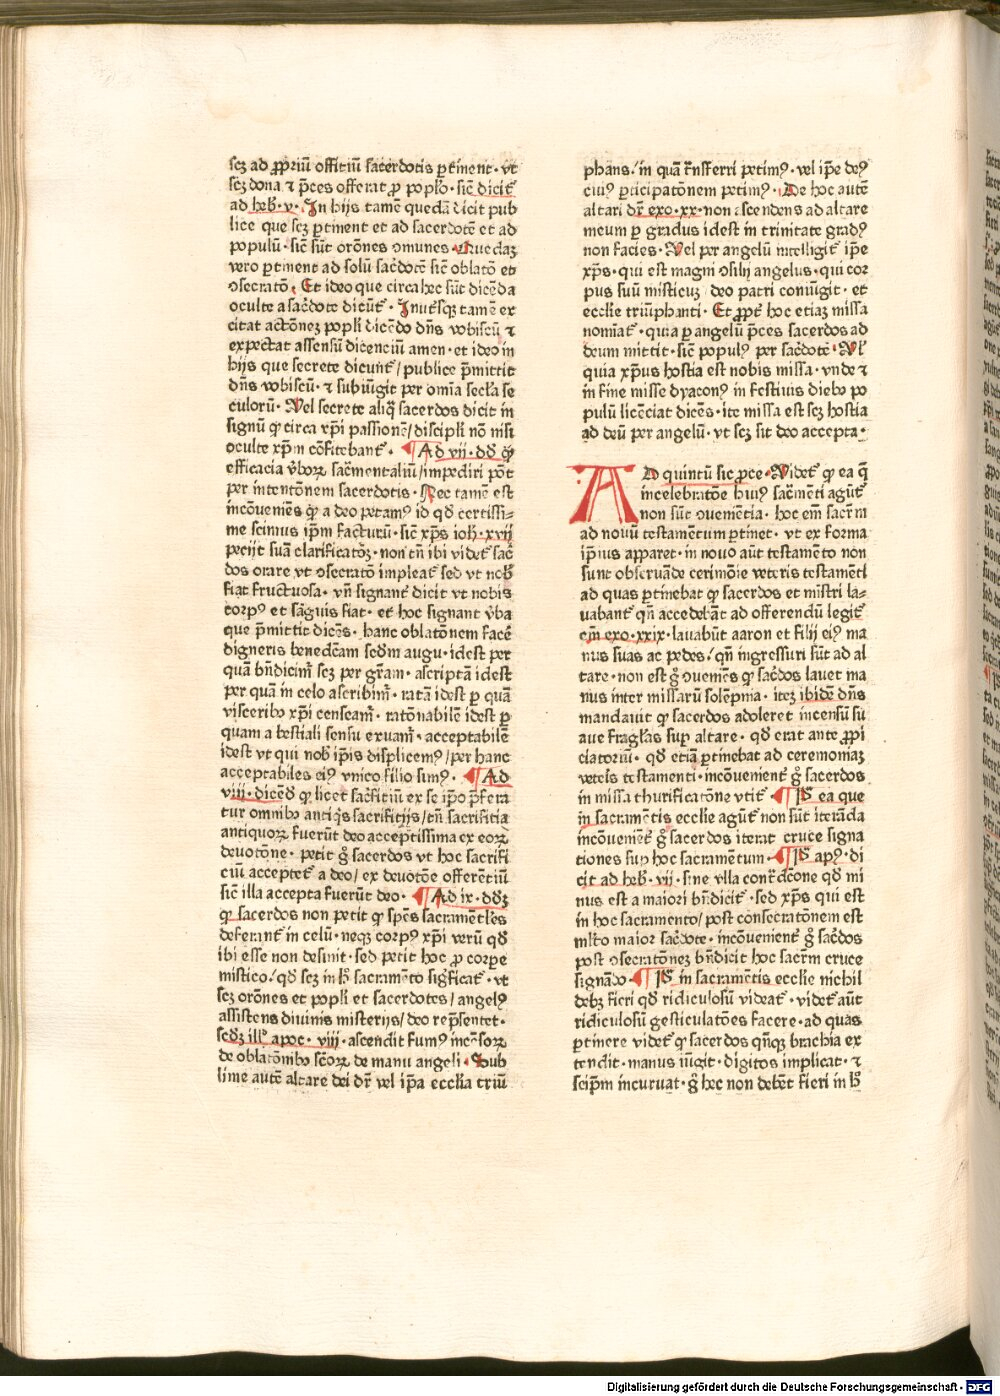 scꝫ ad ꝓpriū offitiū sacerdotis ꝑtinent · vt
scꝫ dona ⁊ p̄ces offerat ꝓ poplo · sic̄ dicit̄
ad heb̄ · v · In hijs tamē quedā dicit pub
lice que scꝫ ꝑtinent et ad sacerdotē et ad
populū · sic̄ sūt orōnes ꝯmunes · Quedaꝫ
vero ꝑtinent ad solū sac̄dotē sic̄ oblatō et
ꝯsecratō · Et ideo que circa hec sūt dicēda
oculte a sac̄dote dicūt̄ · In vt̄sqꝫ tamē ex
citat actōneꝫ popl̄i dicēdo dn̄s vobiscū ⁊
expectat assensū dicenciū amen · et ideo in
hijs que secrete dicunt̄ / publice p̄mittit
dn̄s vobiscū · ⁊ subiūgit per om̄ia secl̄a se
culorū · Vel secrete aliq̄ sacerdos dicit in
signū ꝙ circa xp̄i passionē / discipl̄i nō nisi
oculte xp̄m cōfitebant̄ · ¶ Ad vij · dd̄ ꝙ
efficacia v̄boꝝ sac̄mentaliū / impediri pōt
per intentōnem sacerdotis · Nec tamē est
incōueniēs ꝙ a deo petamꝰ id qd̄ certissi-
me scimus ip̄m facturū · sic̄ xp̄s ioh̄ · xvij
petijt suā clarificatōꝫ · non tn̄ ibi videt̄ sac̄
dos orare vt ꝯsecratō impleat̄ sed vt nob̄
fiat fructuosa · vn̄ signant̄ dicit vt nobis
corpꝰ et sāguis fiat · et hoc signant v̄ba
que p̄mittit dicēs · hanc oblatōnem facē
digneris benedc̄am scd̄m augu · idest per
quā bn̄dicim̄ scꝫ per gr̄am · ascriptā idest
per quā in celo ascribim̄ · ratā idest ꝑ quā
visceribꝰ xp̄i censeam̄ · ratōnabilē idest ꝑ
quam a bestiali sensu exuam̄ · acceptabilē
idest vt qui nob̄ ip̄is displicemꝰ / per hanc
acceptabiles eiꝰ vnico filio simꝰ · ¶ Ad
viij · dicēd̄ ꝙ licet sac̄fitiū ex se ip̄o p̄fera
tur omnibꝰ antiq̄s sacrifitijs / tn̄ sacrifitia
antiquoꝝ fuerūt deo acceptissima ex eoꝝ
deuotōne · petit g̊ sacerdos vt hoc sacrifi
ciū acceptet̄ a deo / ex deuotōe offerētiū
sic̄ illa accepta fuerūt deo · ¶ Ad ix · dd̄ꝫ
ꝙ sacerdos non petit ꝙ sp̄es sacramētl̄es
deferant̄ in celū · neqꝫ corpꝰ xp̄i verū qd̄
ibi esse non desinit · sed petit hoc ꝓ corpe
mistico / qd̄ scꝫ in h̄ sacramēto sig̅ficat̄ · vt
scꝫ orōnes et popl̄i et sacerdotes / angelꝰ
assistens diuinis misterijs / deo rep̄sentet ·
scd̄ꝫ ill̄ apoc · viij · ascendit fumꝰ incēsoꝝ
de oblatōnibꝰ sc̄oꝝ de manu angeli · Sub
lime autē altare dei dr̄ vel ip̄a eccl̄ia triū
phans / in quā trn̄sferri petimꝰ · vel ip̄e deꝰ
cuiꝰ ꝑticipatōnem petimꝰ · De hoc autē
altari dr̄ exo · xx · non ascendens ad altare
meum ꝑ gradus idest in trinitate gradꝰ
non facies · Vel per angelū intelligit̄ ip̄e
xp̄s · qui est magni ꝯsilij angelus · qui cor
pus suū misticuꝫ deo patri coniūgit · et
eccl̄ie triūphanti · Et ꝓpt̄ hoc etiaꝫ missa
nomiat̄ · quia ꝑ angelū p̄ces sacerdos ad
deum mittit · sic̄ populꝰ per sac̄dotē · Vl̄
quia xp̄us hostia est nobis missa · vnde ⁊
in fine misse dyaconꝰ in festiuis diebꝰ po
pulū licēciat dicēs · ite missa est scꝫ hostia
ad deū per angelū · vt scꝫ sit deo accepta ·
AD quintū sic ꝓce · Videt̄ ꝙ ea q̄
in celebratōe huiꝰ sac̄mēti agūt̄
non sūt ꝯuenientia · hoc em̄ sacr̄m
ad nouū testamentum ꝑtinet · vt ex forma
ip̄ius apparet · in nouo aūt testamēto non
sunt obseruāde cerimōie veteris testamēti
ad quas ꝑtinebat ꝙ sacerdos et mistri la-
uabant̄ qn̄ accedebāt ad offerendū legit̄
em̄ exo · xxix · lauabūt aaron et filij eiꝰ ma
nus suas ac pedes / qn̄ ingressuri sūt ad al
tare · non est g̊ ꝯueniēs ꝙ sac̄dos lauet ma
nus inter missarū solēpnia · iteꝫ ibidē dn̄s
mandauit ꝙ sacerdos adoleret incensū su
aue fragl̄as suꝑ altare · qd̄ erat ante ꝓpi
ciatoriū · qd̄ etiā ꝑtinebat ad ceremoniaꝫ
veteris testamenti · incōuenient̄ g̊ sacerdos
in missa thurificatōne vtit̄ · ¶ Pꝰ ea que
in sacramētis eccl̄ie agūt̄ non sūt iterāda
incōueniēt̄ g̊ sacerdos iterat cruce signa
tiones suꝑ hoc sacramētum · ¶ Pꝰ apꝰ · di
cit ad heb̄ · vij · sine vlla cont̄dc̄one qd̄ mi
nus est a maiori bn̄dicit̄ · sed xp̄s qui est
in hoc sacramēto / post consecratōnem est
ml̄to maior sac̄dote · incōuenient̄ g̊ sac̄dos
post ꝯsecratōneꝫ bn̄dicit hoc sacr̄m cruce
signādo · ¶ Pꝰ in sacramētis eccl̄ie nichil
debꝫ fieri qd̄ ridiculosū videat̄ · videt̄ aūt
ridiculosū gesticulatōes facere · ad quas
ꝑtinere videt̄ ꝙ sacerdos qn̄qꝫ brachia ex
tendit · manus iūgit · digitos implicat · ⁊
seip̄m incuruat · g̊ hec non debēt fieri in h̄
Digitalisierung gefördert durch die Deutsche Forschungsgemeinschaft - DFG